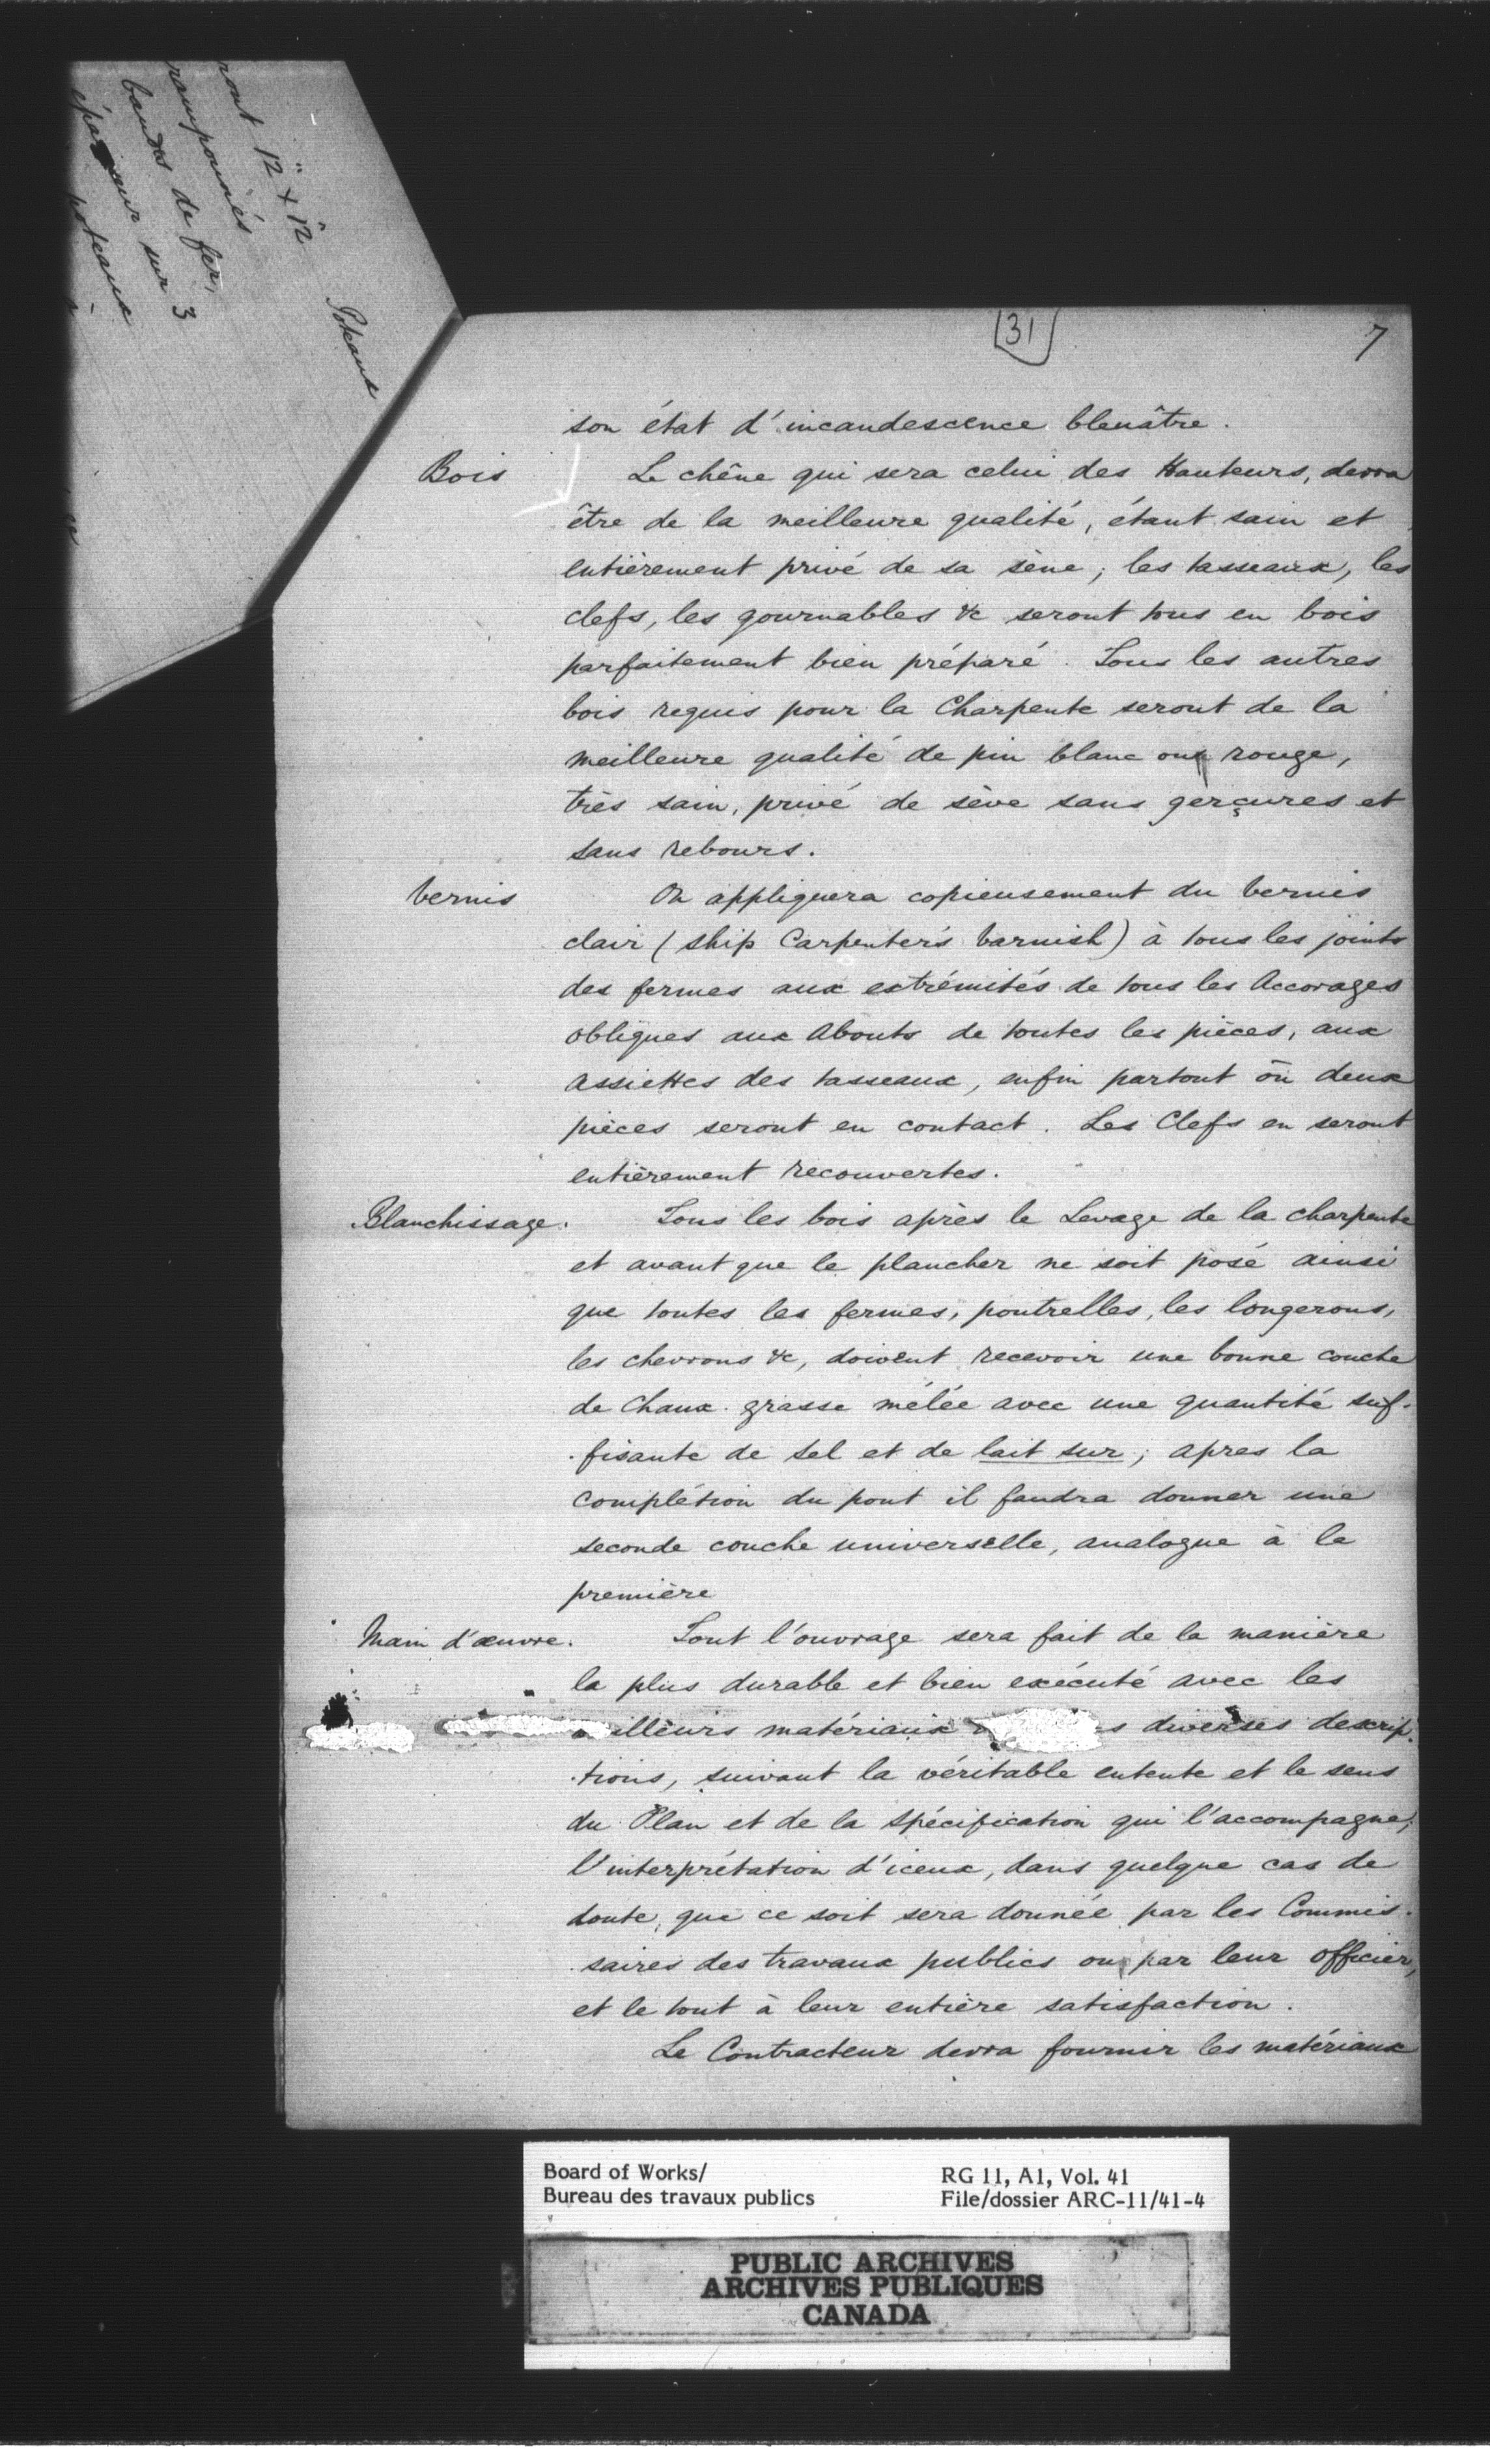 ront 12" x 12"
bandes de fer,
sur 3
poteaux
Poteaux
31
7
son état d'incandescence bleuâtre.
Bois
Le chêne qui sera celui des Hauteurs, devra
être de la meilleure qualité, étant sain et
entièrement privé de sa sève; les tasseaux, les
clefs, les gournables &c seront tous en bois
parfaitement bien préparé. Tous les autres
bois requis pour la Charpente seront de la
meilleure qualité de pin blanc ou rouge,
très sain, privé de sève sans gerçures et
sans rebours.
Vernis
On appliquera copieusement du vernis
clair (ship Carpenter's varnish) à tous les joints
des fermes aux extrémités de tous les Accorages
obliques aux Abouts de toutes les pièces, aux
assiettes des tasseaux, enfin partout où deux
pièces seront en contact. Les Clefs en seront
entièrement recouvertes.
Blanchissage.
Tous les bois après le Levage de la charpente
et avant que le plancher ne soit posé ainsi
que toutes les fermes, poutrelles, les longerons,
les chevrons &c, doivent recevoir une bonne couche
de Chaux grasse mêlée avec une quantité suf-
-fisante de sel et de lait sur; apres la
complétion du pont il faudra donner une
seconde couche universelle, analogue à la
première
Main d'œuvre.
Tout l'ouvrage sera fait de la manière
la plus durable et bien exécuté avec les
illeurs matériaux s diverses descrip-
-tions, suivant la véritable entente et le sens
du Plan et de la spécification qui l'accompagne;
l'interprétation d'iceux, dans quelque cas de
doute, que ce soit sera donnée par les Commis-
-saires des travaux publics ou par leur officier,
et le tout à leur entière satisfaction.
Le Contracteur devra fournir les matériaux
Board of Works/
Bureau des travaux publics
RG 11, A1, Vol. 41
File/dossier ARC-11/41-4
PUBLIC ARCHIVES
ARCHIVES PUBLIQUES
CANADA